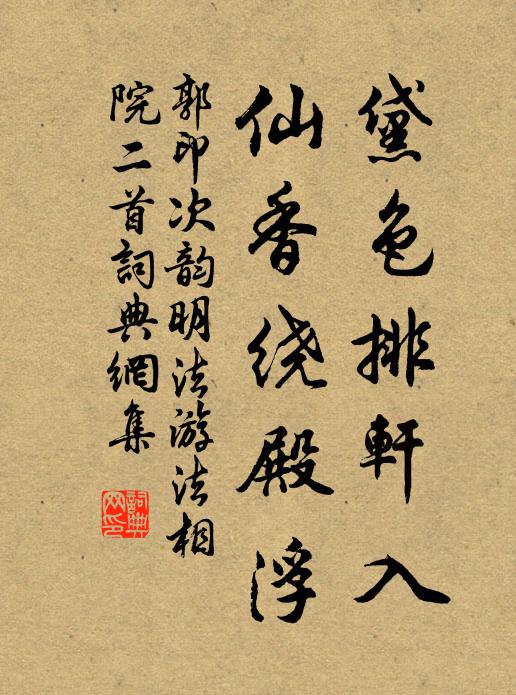 黛色排軒入
仙香绕殿浮
郭印次韵明法游法相
院二首詞典網集
詞典網印